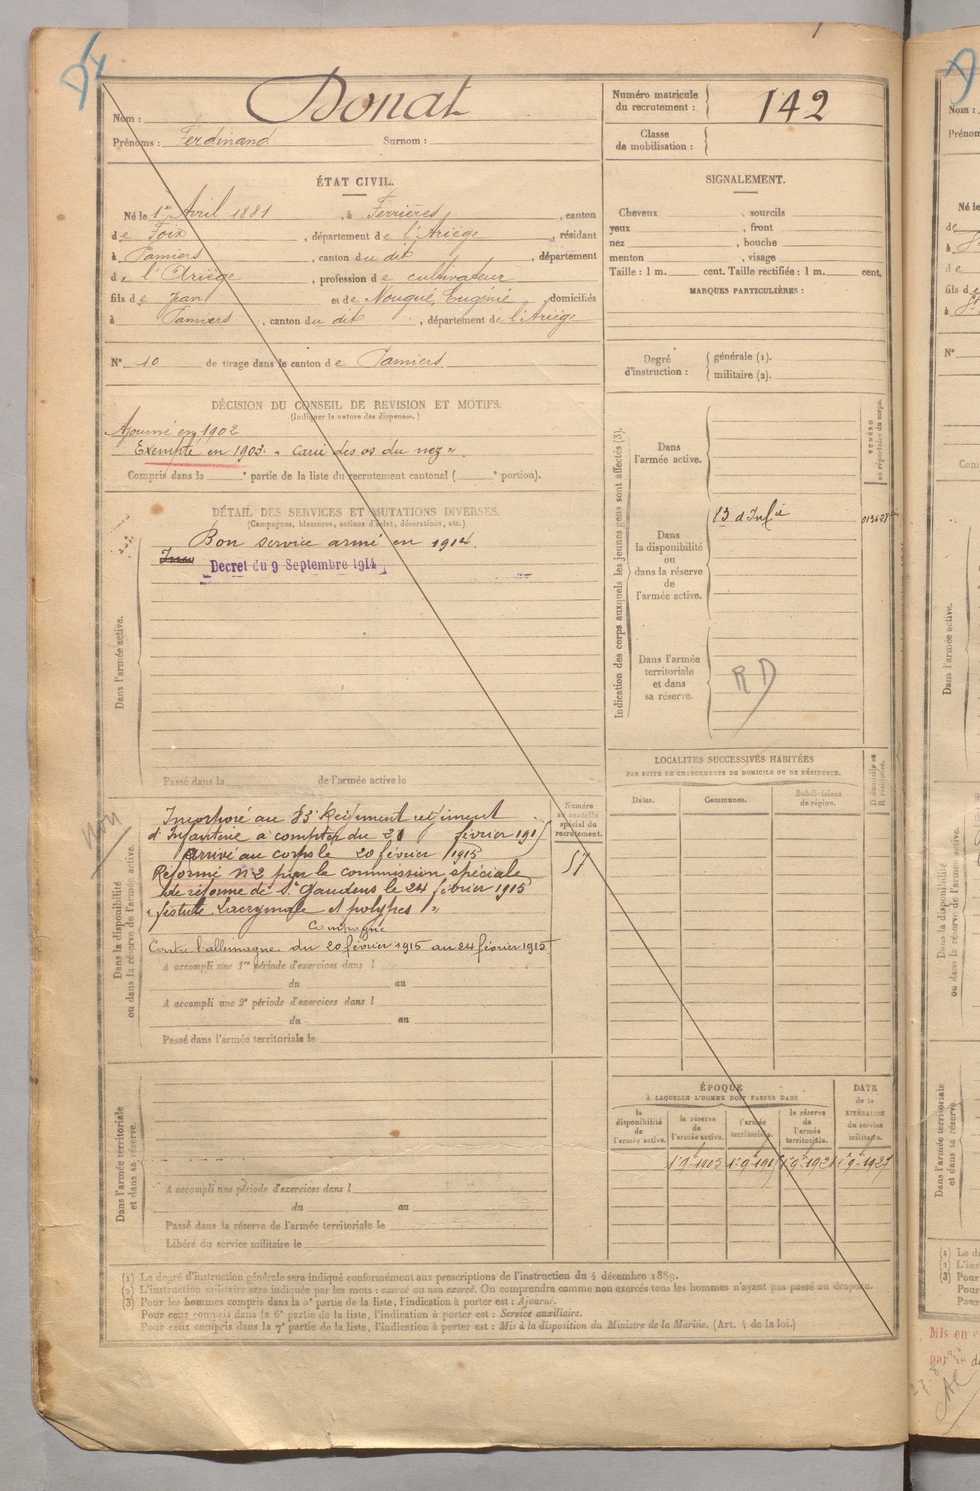 Nom : Donat
Prénoms : Ferdinand Surnom :
Numéro matricule du recrutement : 142
Classe de mobilisation :
ÉTAT CIVIL.
Né le 1er Avril 1881, à Ferrières, canton
de Foix, département de l'Ariège, résidant
à Pamiers, canton du dit, département
de l'Ariège, profession de cultivateur
fils de Jean et de Nougué Eugénie, domiciliés
à Pamiers, canton du dit, département de l'Ariège
N° 10 de tirage dans le canton de Pamiers
SIGNALEMENT.
Cheveux , sourcils
yeux , front
nez , bouche
menton , visage
Taille : 1 m. cent. Taille rectifiée : 1 m. cent.
MARQUES PARTICULIÈRES :
Degré d'instruction : générale (1).
militaire (2).
DÉCISION DU CONSEIL DE REVISION ET MOTIFS.
(Indiquer la nature des dispenses.)
Ajourné en 1902
Exempté en 1903 « carie des os du nez ».
Compris dans la e partie de la liste du recrutement cantonal ( e portion).
DÉTAIL DES SERVICES ET MUTATIONS DIVERSES.
(Campagnes, blessures, actions d'éclat, décorations, etc.)
Bon service armé en 1914.
Decret du 9 Septembre 1914
Dans l'armée active.
Passé dans la de l'armée active le
Indication des corps auxquels les jeunes gens sont affectés (3).
NUMÉRO au répertoire du corps.
Dans l'armée active.
83 d'Infie
Dans la disponibilité ou dans la réserve de l'armée active.
Dans l'armée territoriale et dans sa réserve.
RD
non
Dans la disponibilité ou dans la réserve de l'armée active.
Numéro au contrôle spécial du recrutement.
57
Incorporé au 83e Régiment régiment
d'Infanterie à compter du 20 février 1915
Arrivé au corps le 20 février 1915
Réformé n°2 par la commission spéciale
de réforme de St Gaudens le 24 février 1915
« fistule Lacrymale et polypes »
Campagne
Contre l'allemagne du 20 février 1915 au 24 février 1915
A accompli une 1re période d'exercices dans l
du au
A accompli une 2e période d'exercices dans l
du au
Passé dans l'armée territoriale le
LOCALITES SUCCESSIVES HABITÉES
PAR SUITE DE CHANGEMENTS DE DOMICILE OU DE RÉSIDENCE.
Dates. Communes. Subdivisions de région. D domicile ou R résidence.
Dans l'armée territoriale et dans sa réserve.
A accompli une période d'exercices dans l
du au
Passé dans la réserve de l'armée territoriale le
Libéré du service militaire le
ÉPOQUE
À LAQUELLE L'HOMME DOIT PASSER DANS
la disponibilité de l'armée active.
la réserve de l'armée active.
l'armée territoriale.
la réserve de l'armée territoriale.
DATE de la LIBÉRATION du service militaire.
1.9.1905 1.9.1915 1.9.1921 1.9.1927
(1) Le degré d'instruction générale sera indiqué conformément aux prescriptions de l'instruction du 4 décembre 1889.
(2) L'instruction militaire sera indiquée par les mots : exercé ou non exercé. On comprendra comme non exercés tous les hommes n'ayant pas passé au drapeau.
(3) Pour les hommes compris dans la 5e partie de la liste, l'indication à porter est : Ajourné.
Pour ceux compris dans la 6e partie de la liste, l'indication à porter est : Service auxiliaire.
Pour ceux compris dans la 7e partie de la liste, l'indication à porter est : Mis à la disposition du Ministre de la Marine. (Art. 4 de la loi.)